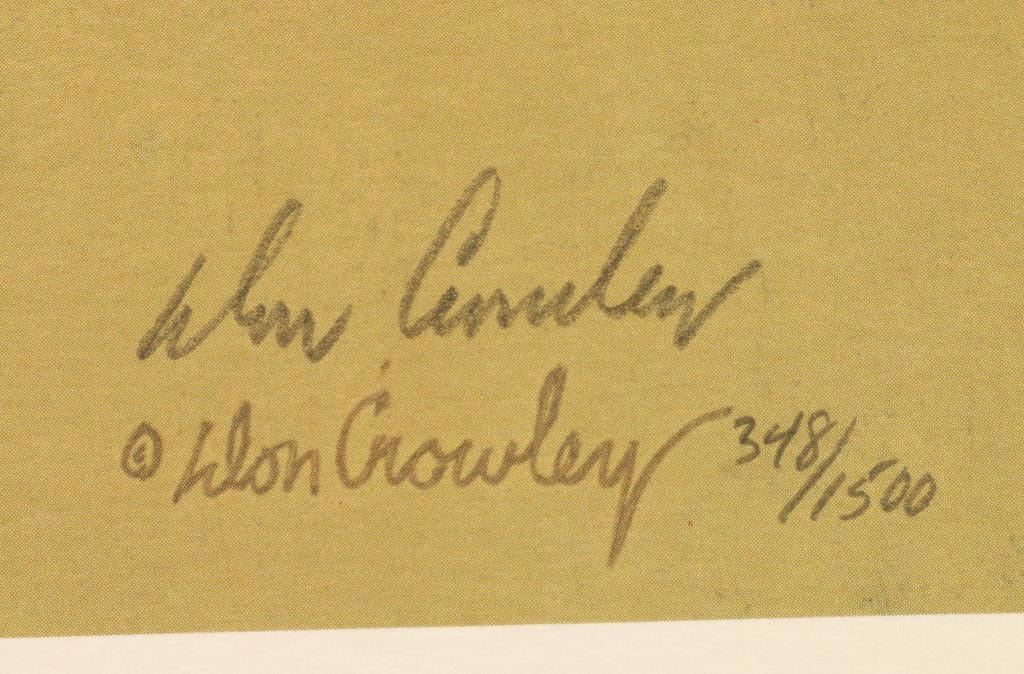 Don Crowley
© Don Crowley 348/1500